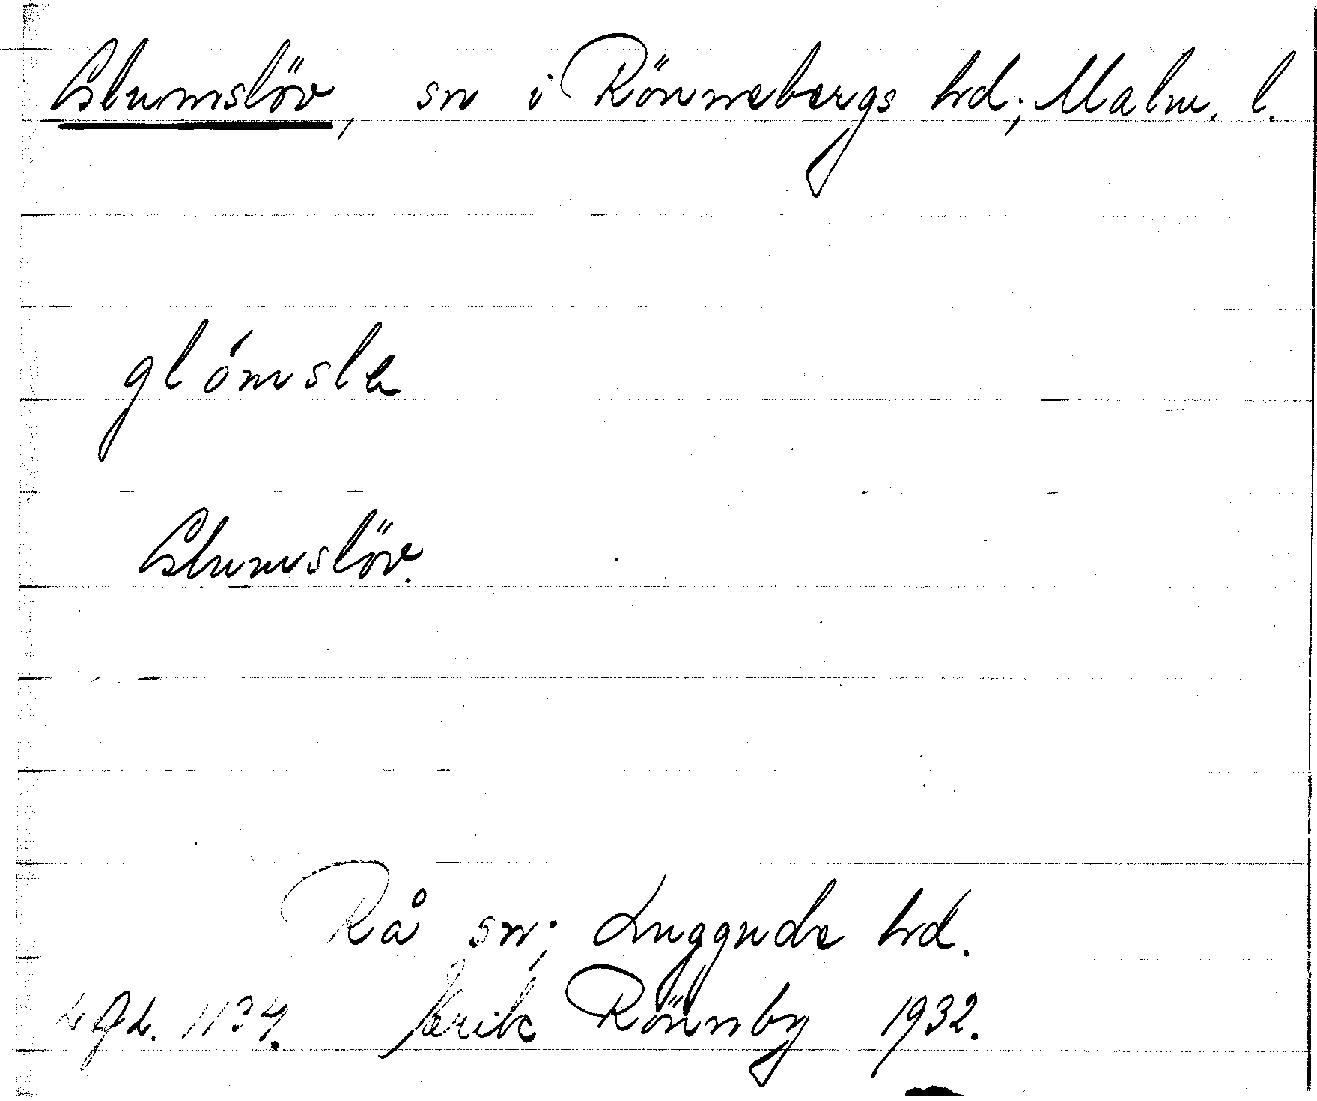 Glumslöv, sn i Rönnebergs hd; Malm. l.
glómsle
Glumslöv.
Rå sn; Luggude hd.
1134. Erik Rönnby 1932.